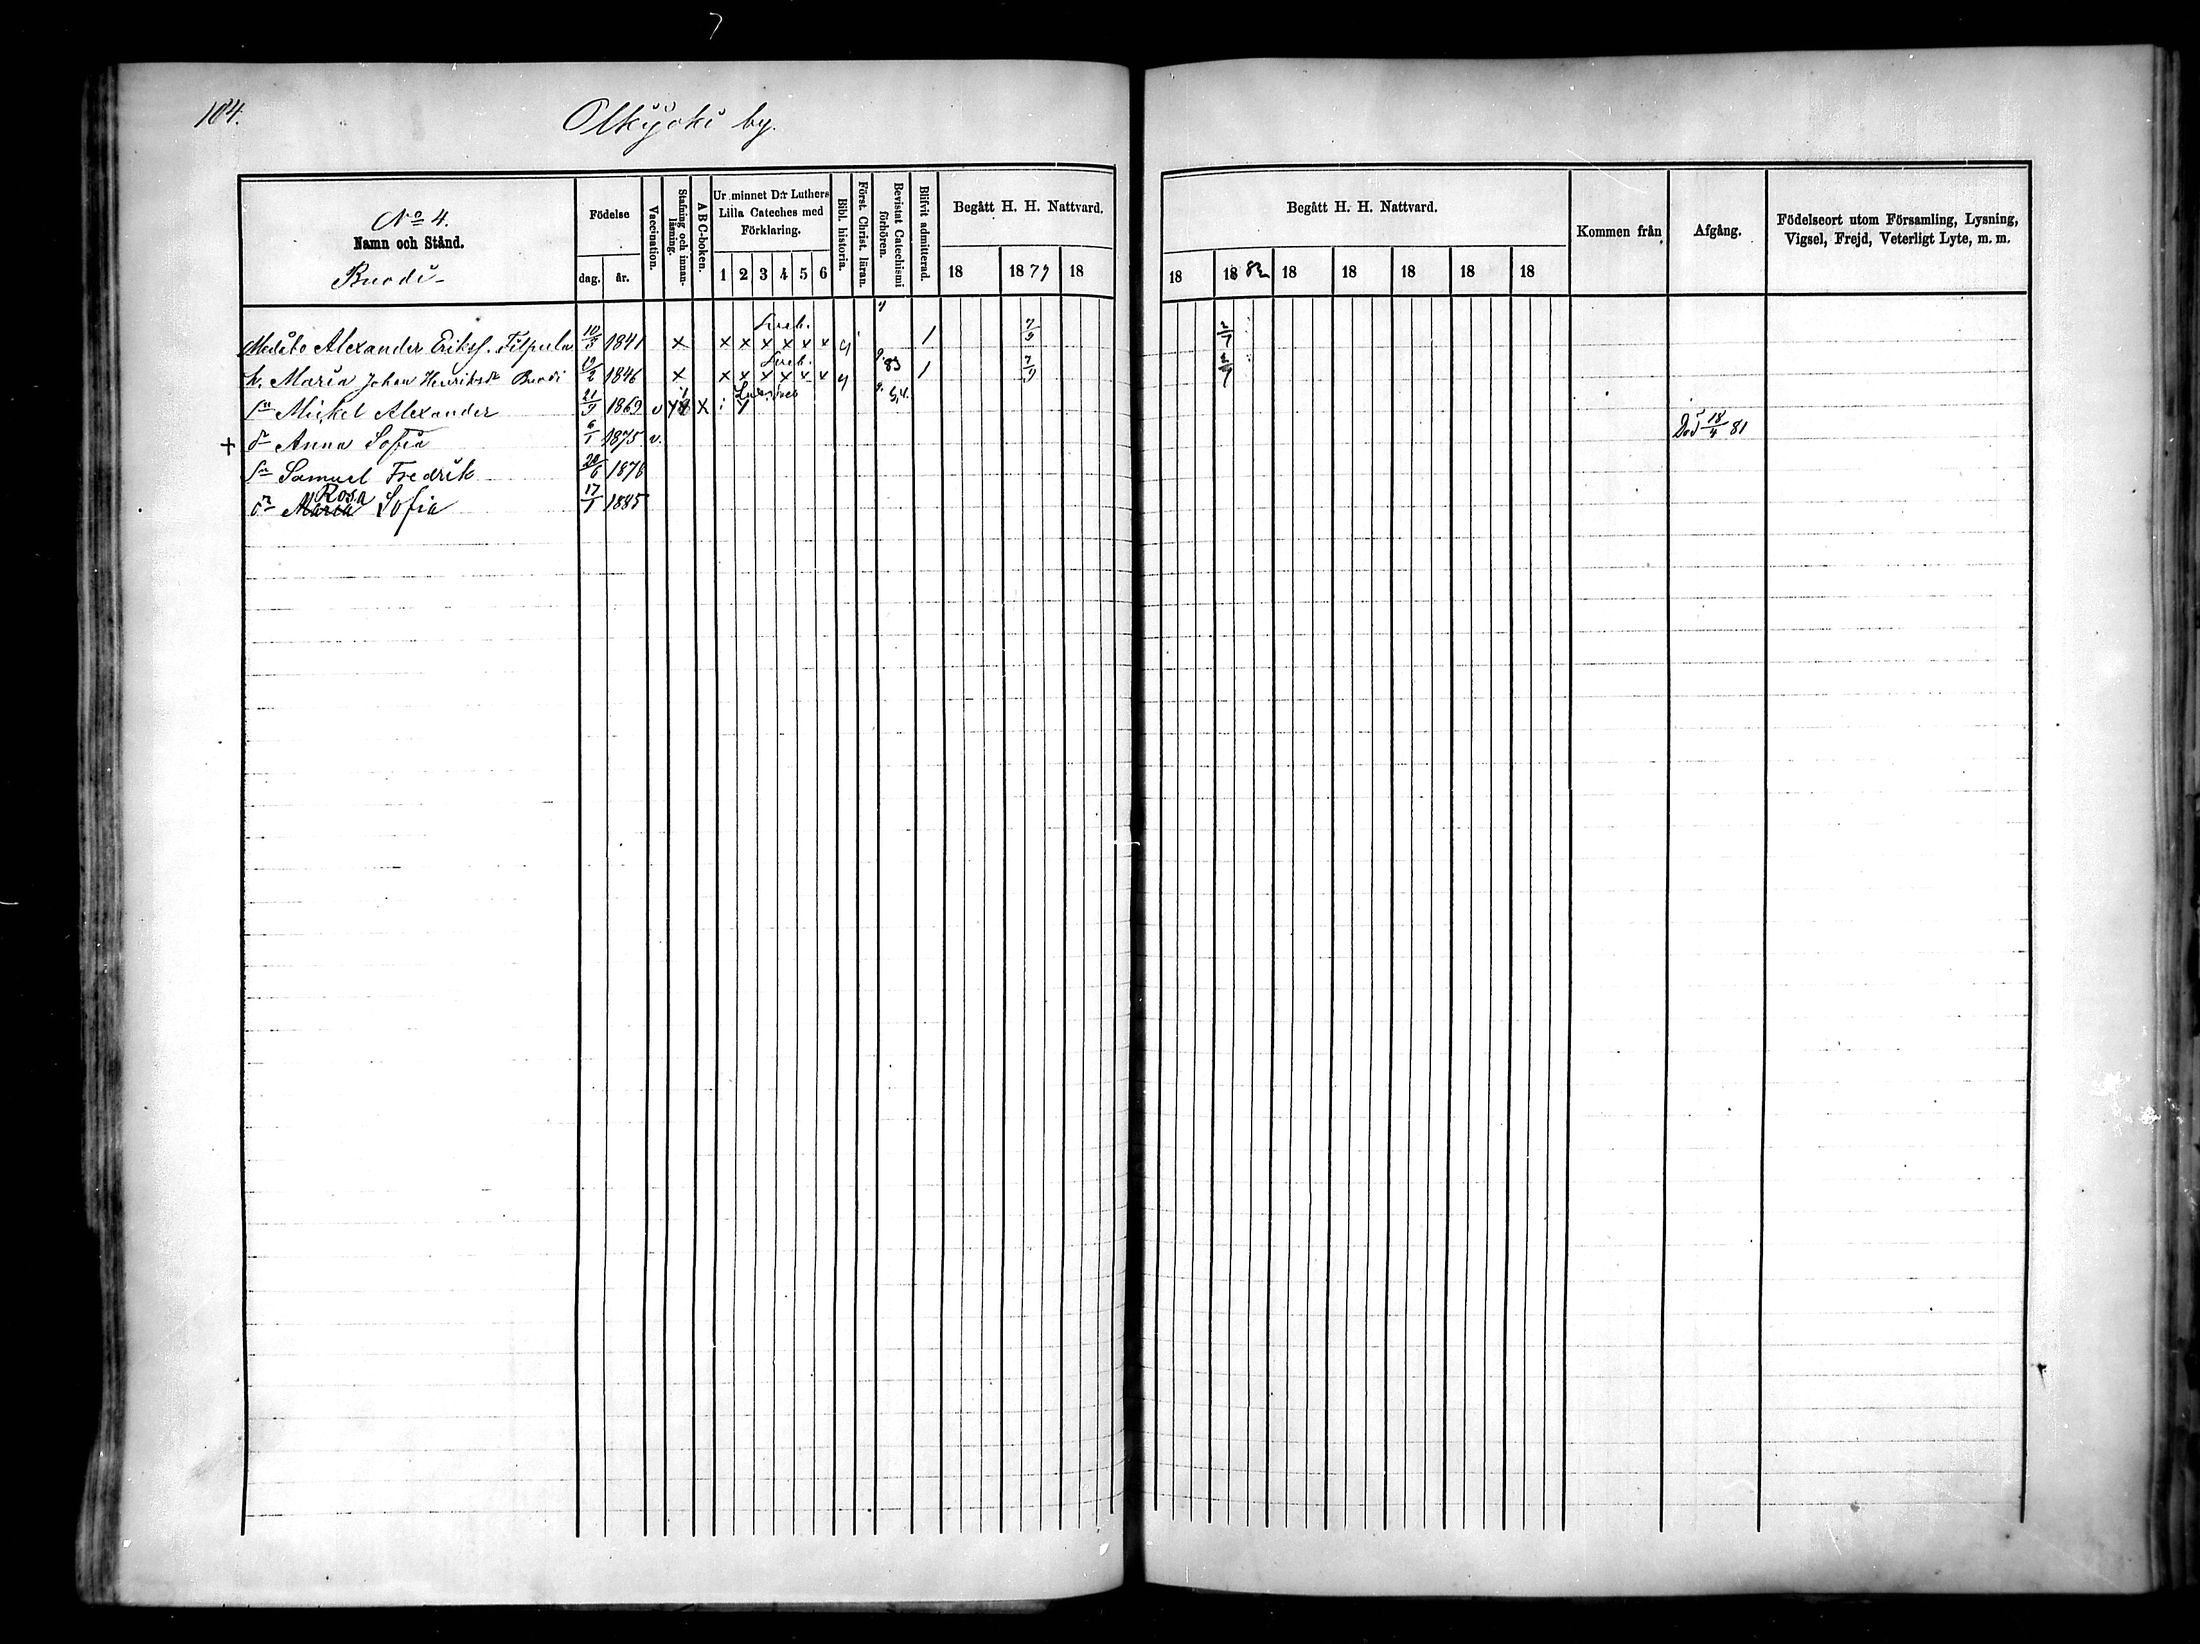 104.
Olkijoki by.
No 4.
Namn och Stånd.
Ruodi
Födelse
dag. år.
Vaccination.
Stafning och innanläsning.
A B C-boken.
Ur minnet D:r Luthers
Lilla Cateches med
Förklaring.
1 2 3 4 5 6
Bibl. historia.
Först. Christ. läran.
Bevistat Catechismi förhören.
Blifvit admitterad.
Begått H. H. Nattvard.
18 1879 18
Begått H. H. Nattvard.
18 1882 18 18 18 18 18
Kommen från
Afgång.
Födelseort utom Församling, Lysning,
Vigsel, Frejd, Veterligt Lyte, m. m.
Alexander Erikss. Filpula 10/3 1841 x x x x x x x 1 7/9 2/7
h. Maria Johan Henriksdr Ruodi 19/2 1846 x x x x x x x 83 1 7/9 2/7
sn Mickel Alexander 21/9 1869 v x
+ dr Anna Sofia 6/1 1875 v. Död 18/4 81
sn Samuel Fredrik 20/6 1876
dr Maria Rosa Sofia 17/1 1885